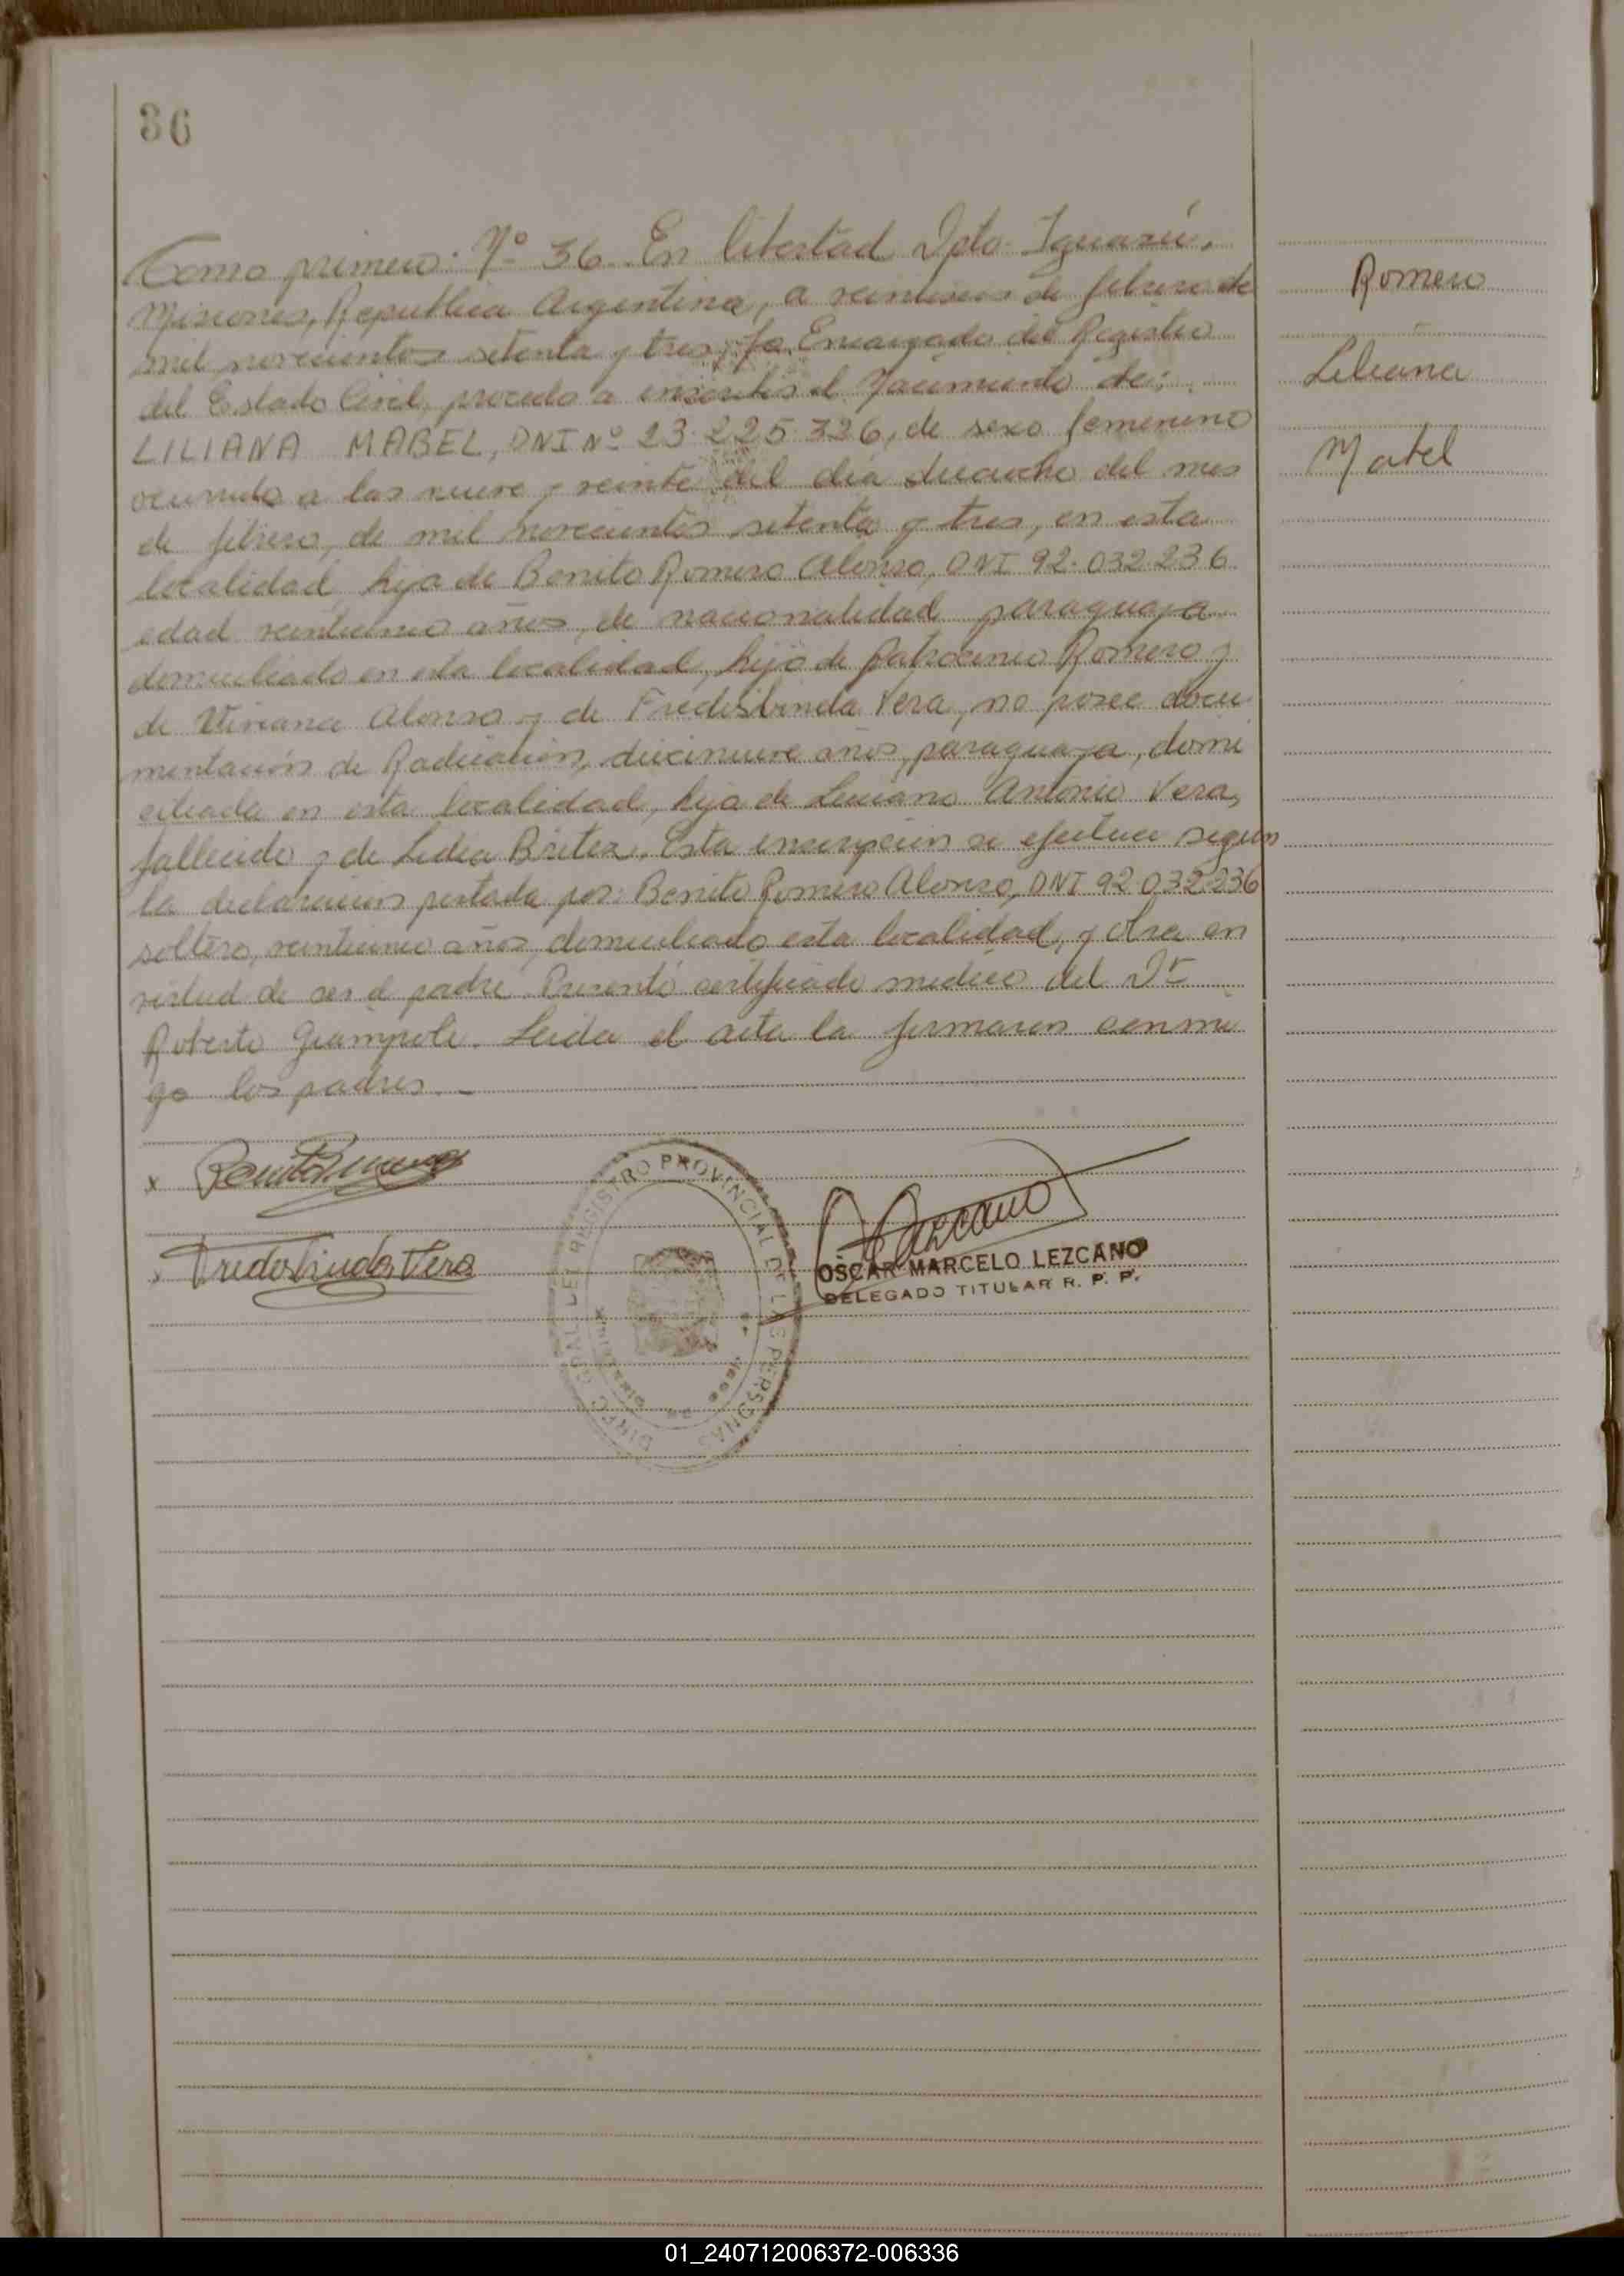 36
Tomo primero: Nº 36. En libertad Dpto. Iguazú,
Misiones, Republica Argentina, a veintiseis de febrero de
mil novecientos setenta y tres, Yo, Encargado del Registro
del Estado Civil, procedo a inscribir el Nacimiento de:
LILIANA MABEL, DNI Nº 23.225.326, de sexo femenino
ocurrido a las nueve y veinte del dia dieciocho del mes
de febrero, de mil novecientos setenta y tres, en esta
localidad, hija de Benito Romero Alonso, DNI 92.032.236
edad veinticinco años, de nacionalidad paraguaya
domiciliado en esta localidad, hijo de Patrocinio Romero y
de Viviana Alonso y de Fredesbinda Vera, no posee docu
mentación de Radicación, diecinueve años, paraguaya, domi
ciliada en esta localidad, hija de Luciano Antonio Vera,
fallecido y de Lidia Britez. Esta inscripcion se efectua segun
la declaracion prestada por: Benito Romero Alonso, DNI 92.032.236
soltero, veinticinco años, domiciliado esta localidad, y obra en
virtud de ser el padre. Presentó certificado medico del Dr
Roberto Giampoli. Leida el acta la firmaron conmi
go los padres.-
Romero
Liliana
Mabel
x Benito Romero
Fredesbinda Vera
DIREC. GRAL DEL REGISTRO PROVINCIAL DE LAS PERSONAS
OSCAR MARCELO LEZCANO
DELEGADO TITULAR R. P. P.
01_240712006372-006336